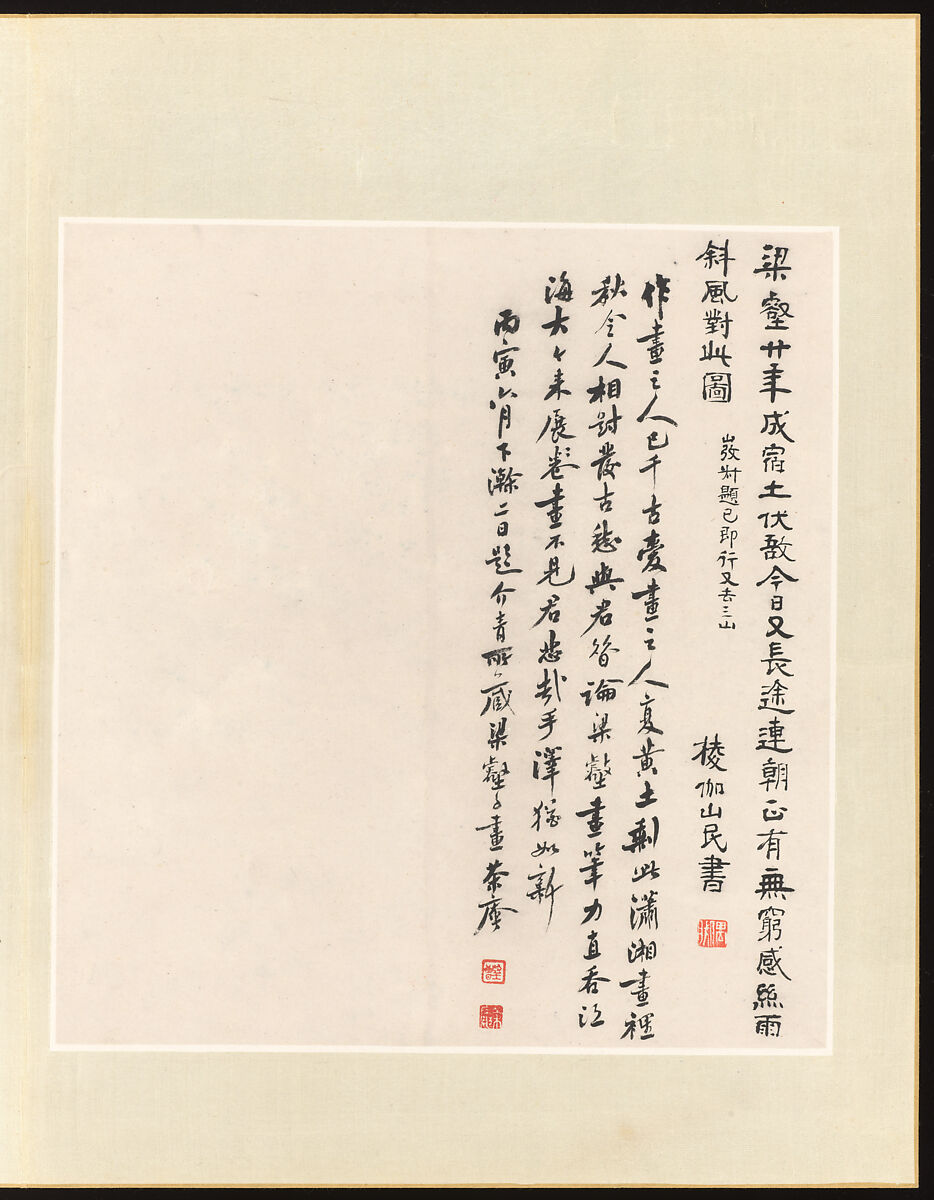 梁壑廿年成宿土伏敔今日又長途連朝正有無窮感絲雨
斜風對此圖
敔尌題已即行又去三山
棱伽山民書
作畫之人已千古愛畫之人复黄土剩此瀟湘畫裡
秋令人相對發古愁與君昝論梁壑畫筆力直吞江
海大々来展卷畫不見君悲哉手澤猶如新
丙寅六月下瀚二日題介青所藏梁壑子畫 茶庵